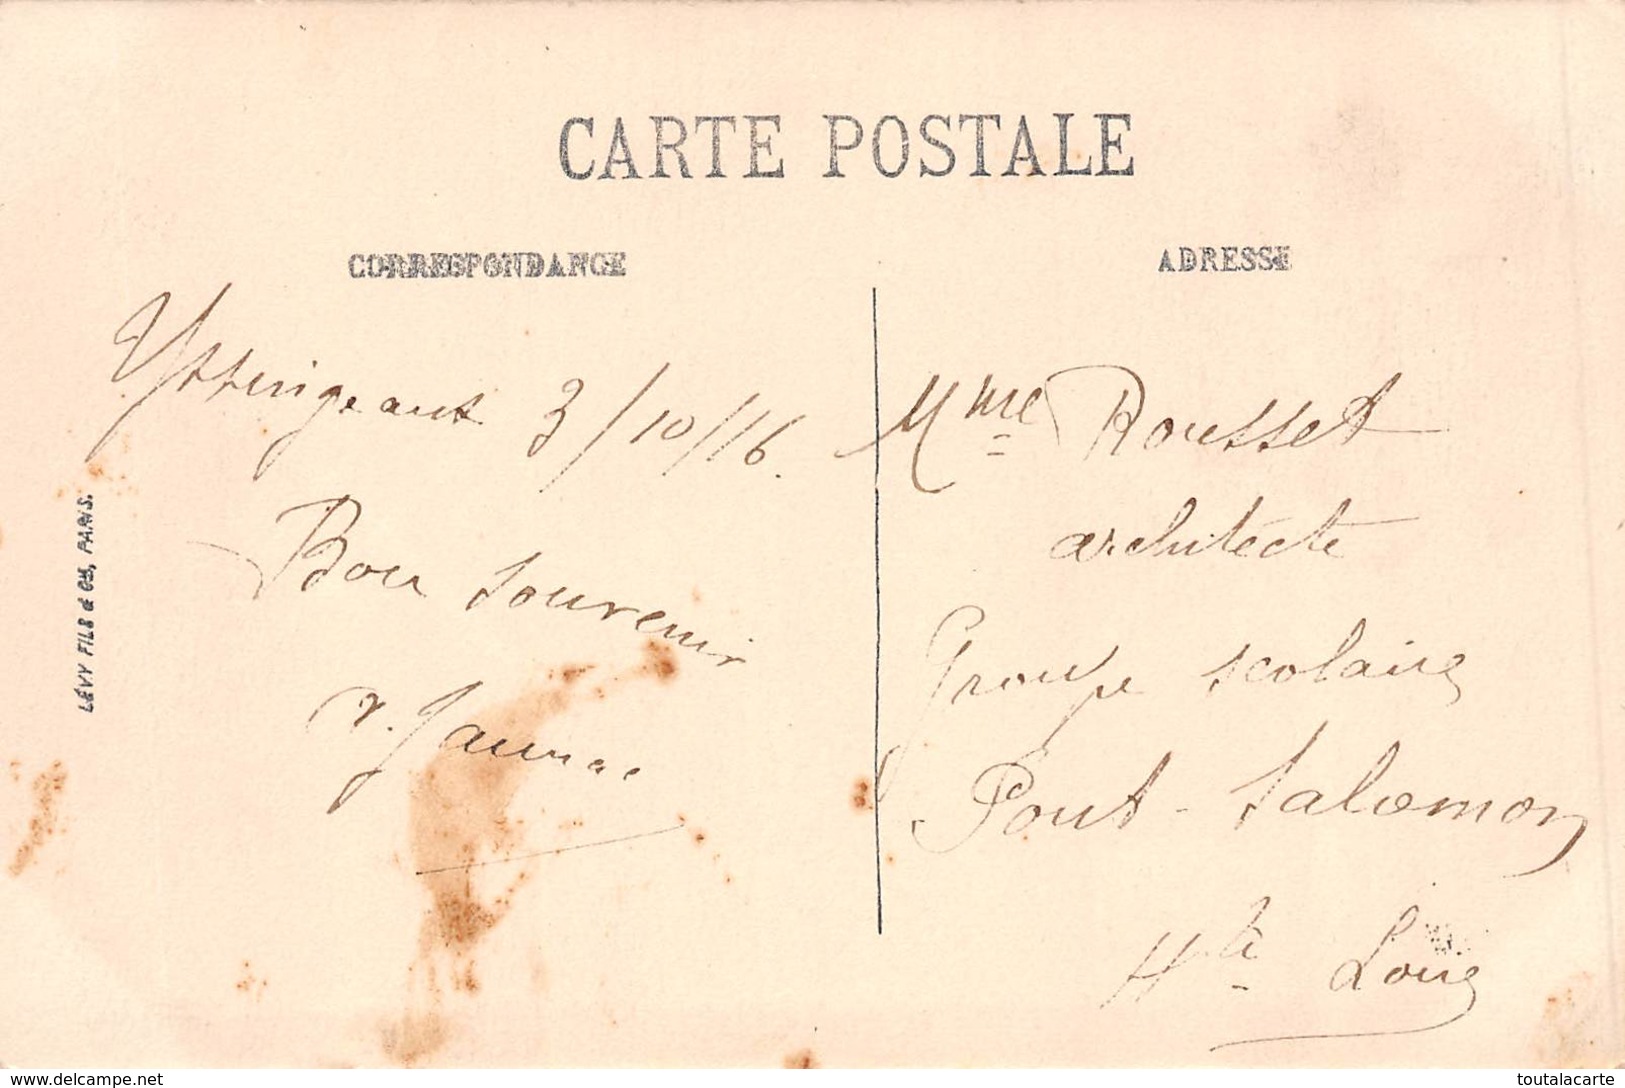 CARTE POSTALE
CORRESPONDANCE
ADRESSE
Yssingeaux 3/10/16.
Bon souvenir
LÉVY FILS & Cie, PARIS.
Mme Rousset
architecte
Groupe scolaire
Pont-Salomon
Hte Loire
www.delcampe.net
toutalacarte